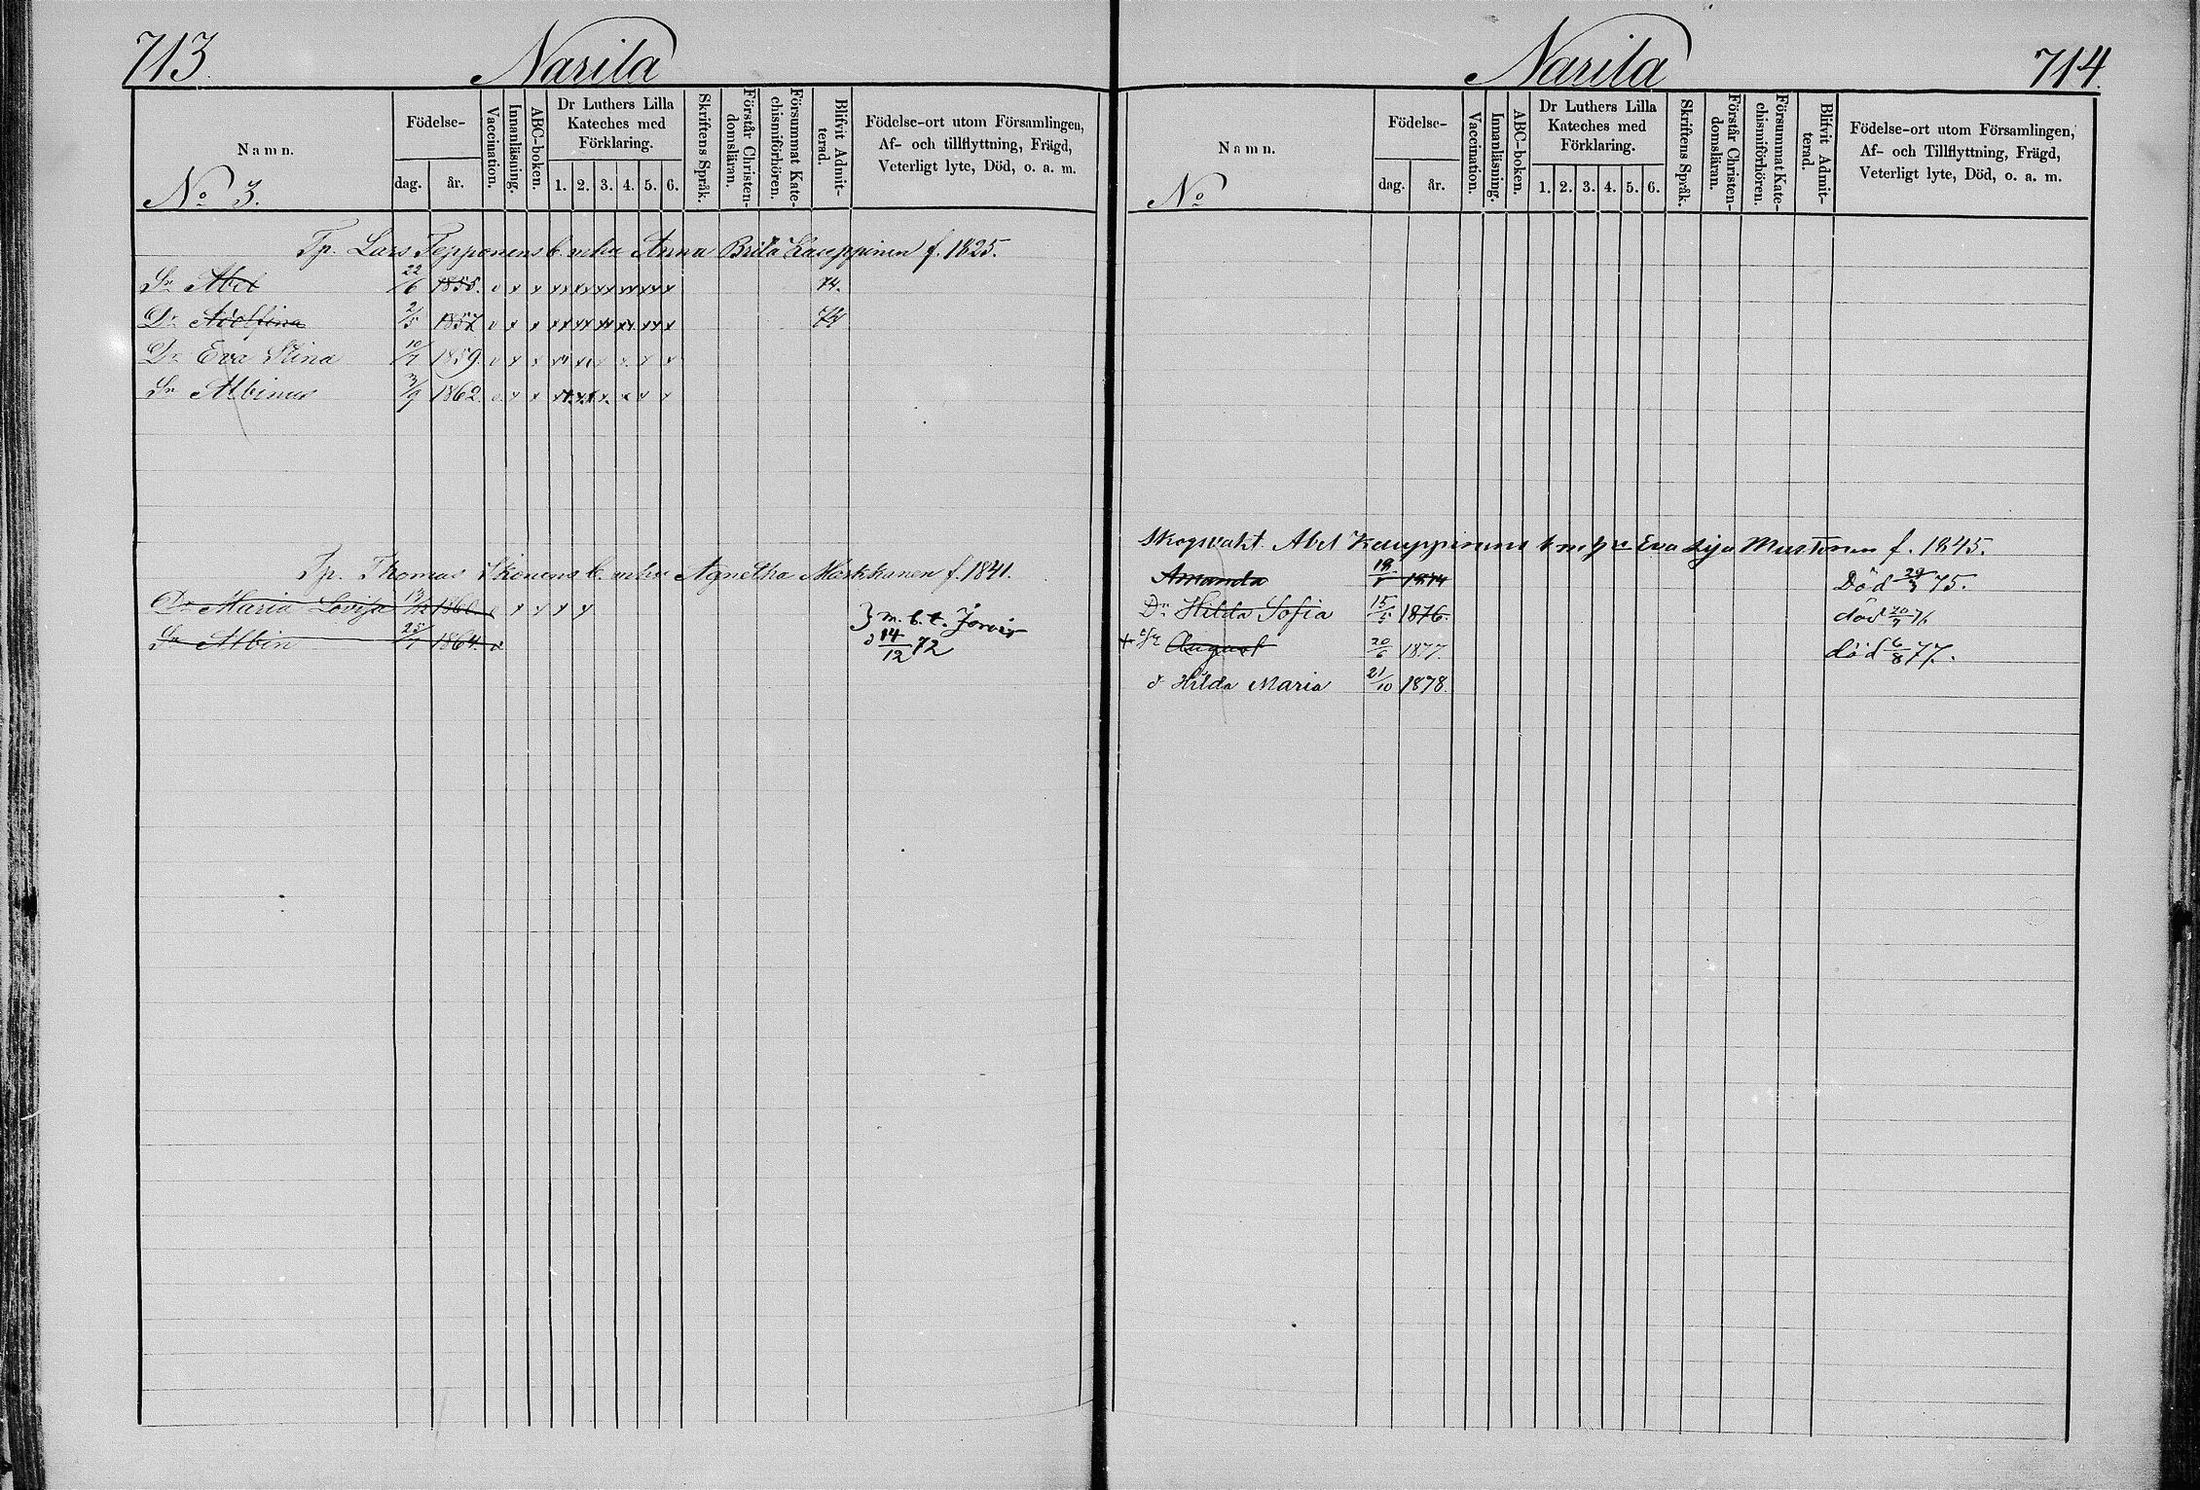 713.
Narila
Namn.
No 3.
Födelse-
dag.
år.
Vaccination.
Innanläsning.
ABC-boken.
Dr Luthers Lilla
Kateches med
Förklaring.
1. 2. 3. 4. 5. 6.
Skriftens Språk.
Förstår Christen-
domsläran.
Försummat Kate-
chismiförhören.
Blifvit Admit-
terad.
Födelse-ort utom Församlingen,
Af- och tillflyttning, Frägd,
Veterligt lyte, Död, o. a. m.
Tp. Lars Tepponens b. m hu Anna Brita Kauppinen f. 1825.
Sn Abel 22/6 1855. v x x xx xx xx xx xx x 74.
Dr Adolfina 2/5 1857 v x x xx xx xx xx xx x 74
Dr Eva Stina 10/7 1859. v x x
Sn Albinus 3/9 1862. v x x
Tp. Thomas Ikonens b. m hu Agnetha Markkanen f. 1841.
Dr Maria Lovisa 13/12 1860. v x x x x
Sn Albin 25/7 1864. v
} m. b. t. Jorois
d 14/12 72
Narila
714.
Namn.
No
Födelse-
dag.
år.
Vaccination.
Innanläsning.
ABC-boken.
Dr Luthers Lilla
Kateches med
Förklaring.
1. 2. 3. 4. 5. 6.
Skriftens Språk.
Förstår Christen-
domsläran.
Försummat Kate-
chismiförhören.
Blifvit Admit-
terad.
Födelse-ort utom Församlingen,
Af- och Tillflyttning, Frägd,
Veterligt lyte, Död, o. a. m.
Skogsvakt. Abel Kauppinens b m hu Eva Lisa Mustonen f. 1845.
Amanda 1874 Död 29/3 75.
Dr Hilda Sofia 15/5 1876. död 20/7 76
August 20/6 1877. död 6/8 77.
d Hilda Maria 21/10 1878.